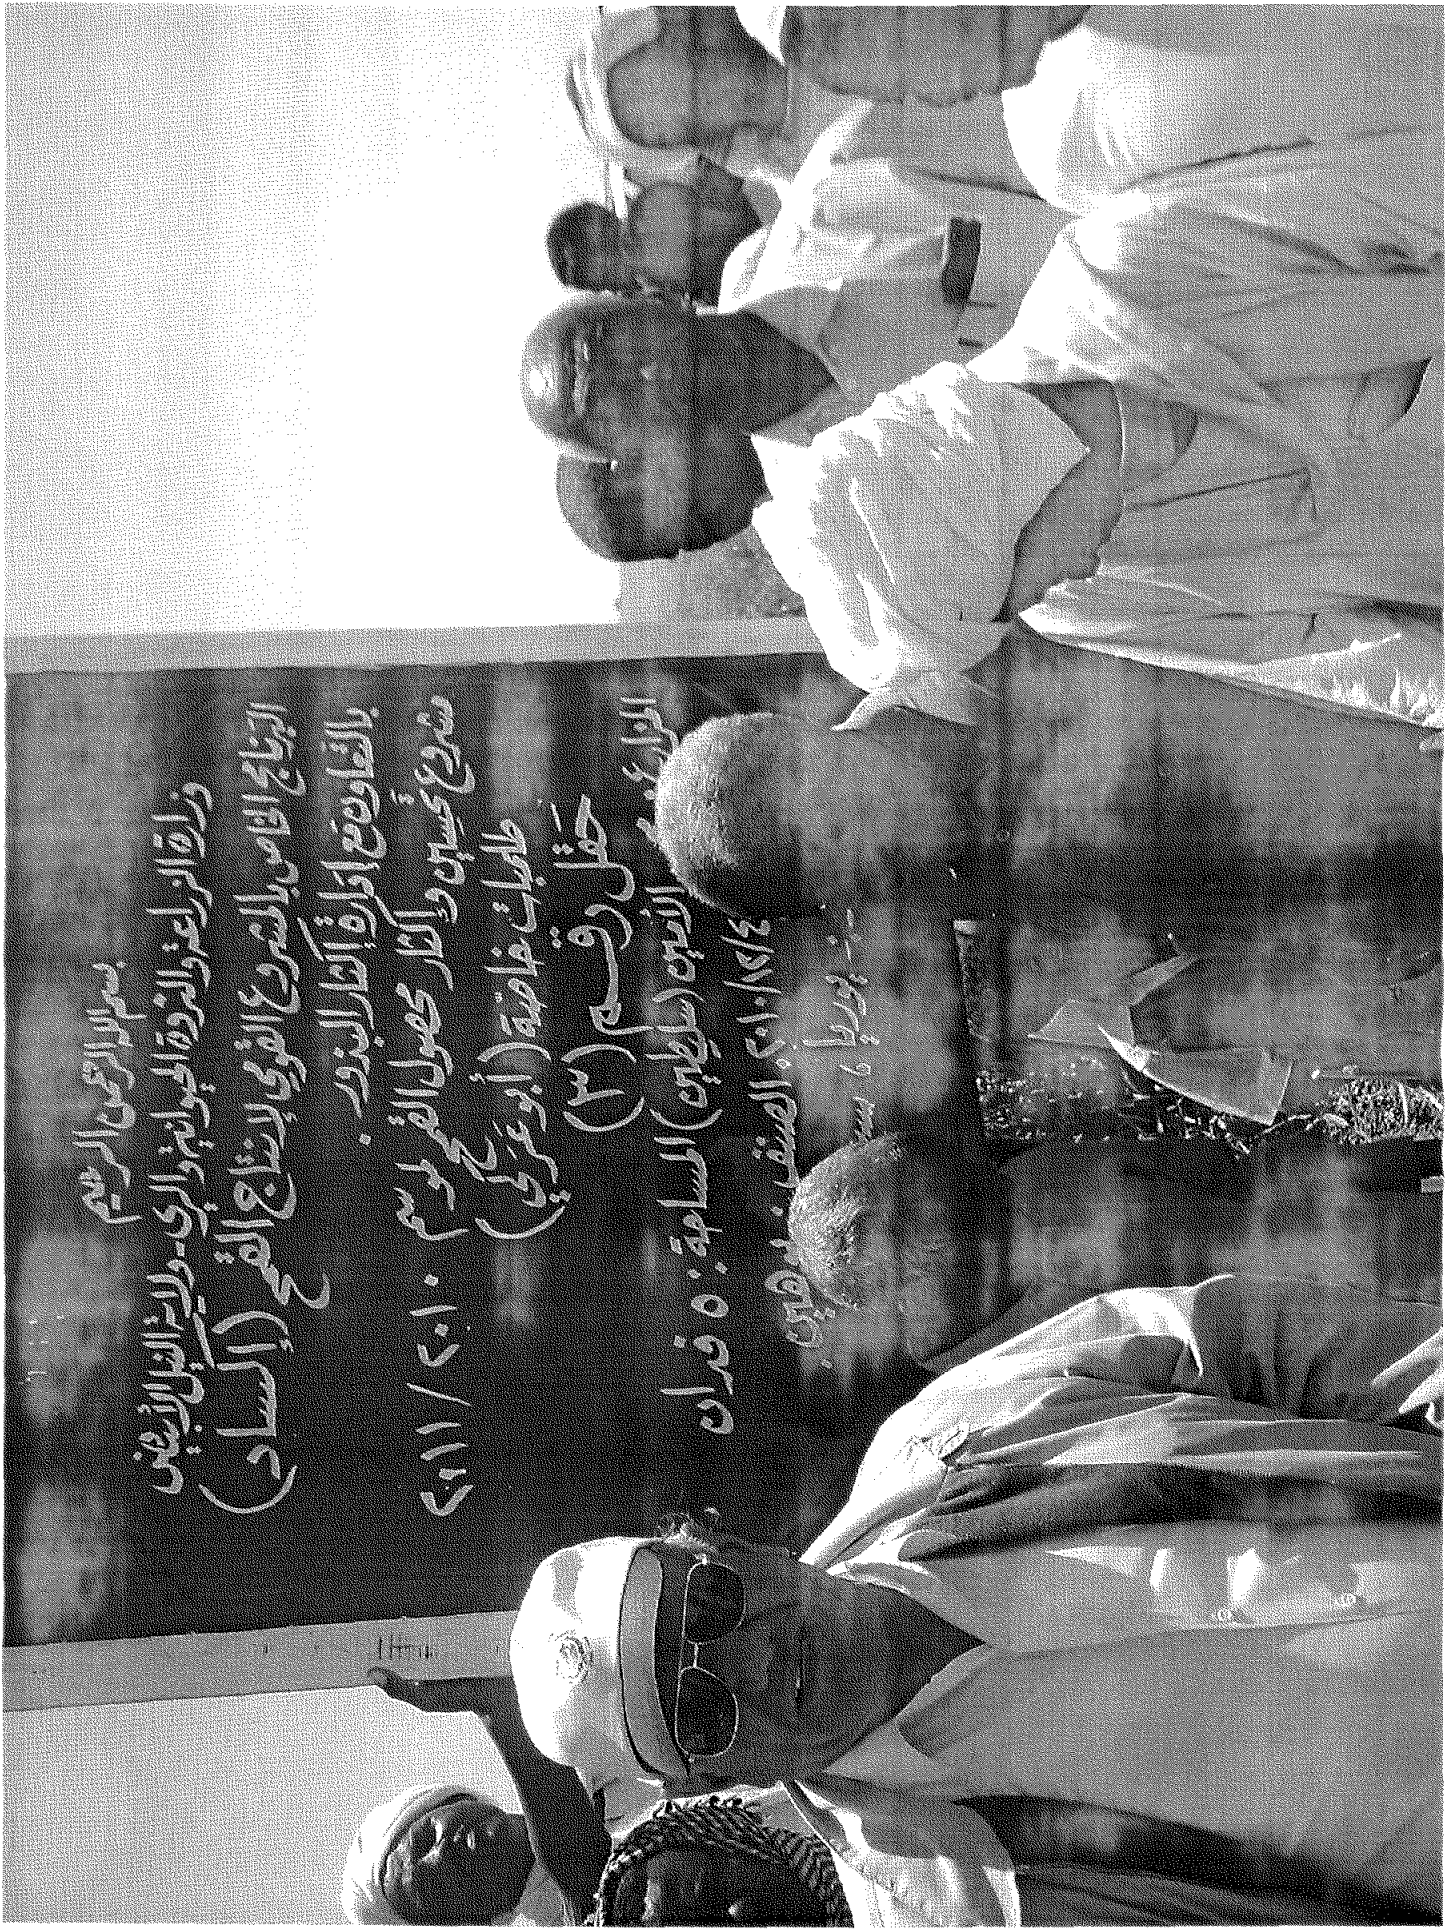 بسم الله الرحمن الرحيم
وزارة الزراعة والثروة الحيوانية والري - ولاية النيل الأبيض
البرنامج الخاص بالمشروع القومي لإنتاج القمح (إكساد)
بالتعاون مع إدارة إكثار البذور.
مشروع تحسين وإكثار محصول القمح لموسم ٢٠١٠ / ٢٠١١
طلمبات خاصة (أبو عركي)
حقل رقم (٣)
الأمين (سليطين) المساحة: ٥٠ فدان
٢٠١٠/١٢/٤ الصنف:
يوريا